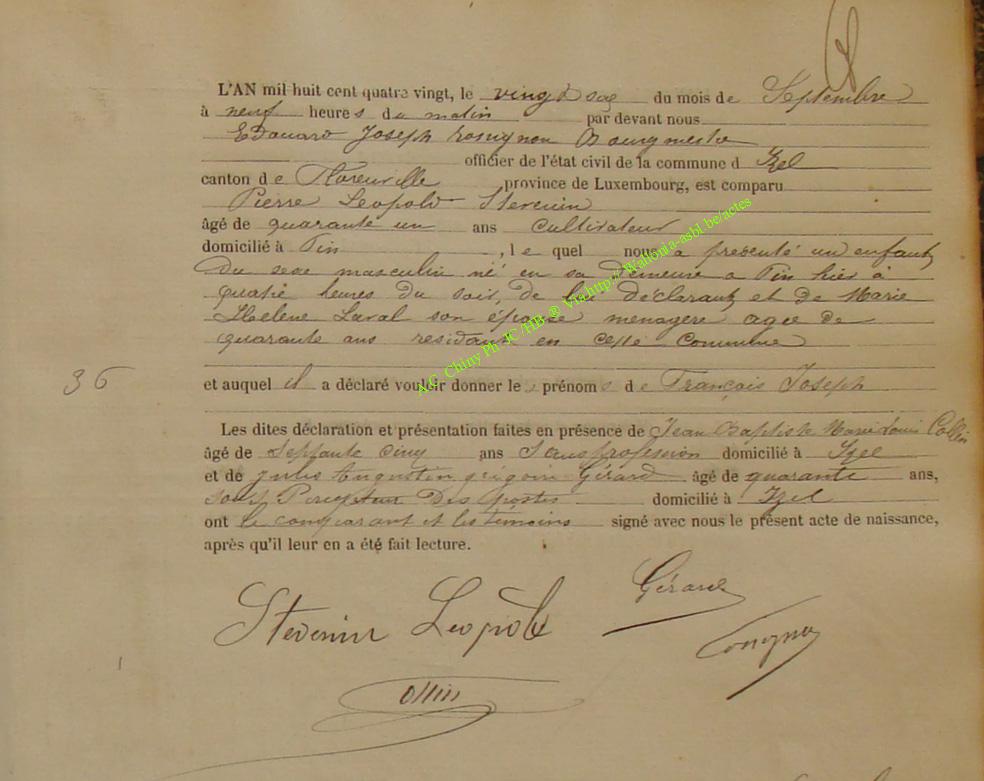 L'AN mil huit cent quatre vingt, le vingt six du mois de Septembre
à neuf heures du matin par devant nous
Edouard Joseph Rossignon Bourgmestre
officier de l'état civil de la commune d Izel
canton de Florenville province de Luxembourg, est comparu
Pierre Leopold Stevenin
âgé de quarante un ans cultivateur
domicilié à Pin, le quel nous a présenté un enfant
du sexe masculin né en sa demeure a Pin hier à
quatre heures du soir, de lui déclarant et de Marie
Helene Laval son épouse menagere agée de
quarante ans residant en cette commune
36
et auquel il a déclaré vouloir donner le s prénoms de François Joseph
Les dites déclaration et présentation faites en présence de Jean Baptiste Marie Louis Collin
âgé de Septante cinq ans Sans profession domicilié à Izel
et de Jules Augustin grégoire Gérard âgé de quarante ans,
sous Percepteur Des postes domicilié à Izel
ont le comparant et les témoins signé avec nous le présent acte de naissance,
après qu'il leur en a été fait lecture.
Stevenin Leopold Gérard
Rossignon
Collin
A.G. Chiny Ph JC /HB @ Via http:// Wallonia-asbl.be/actes